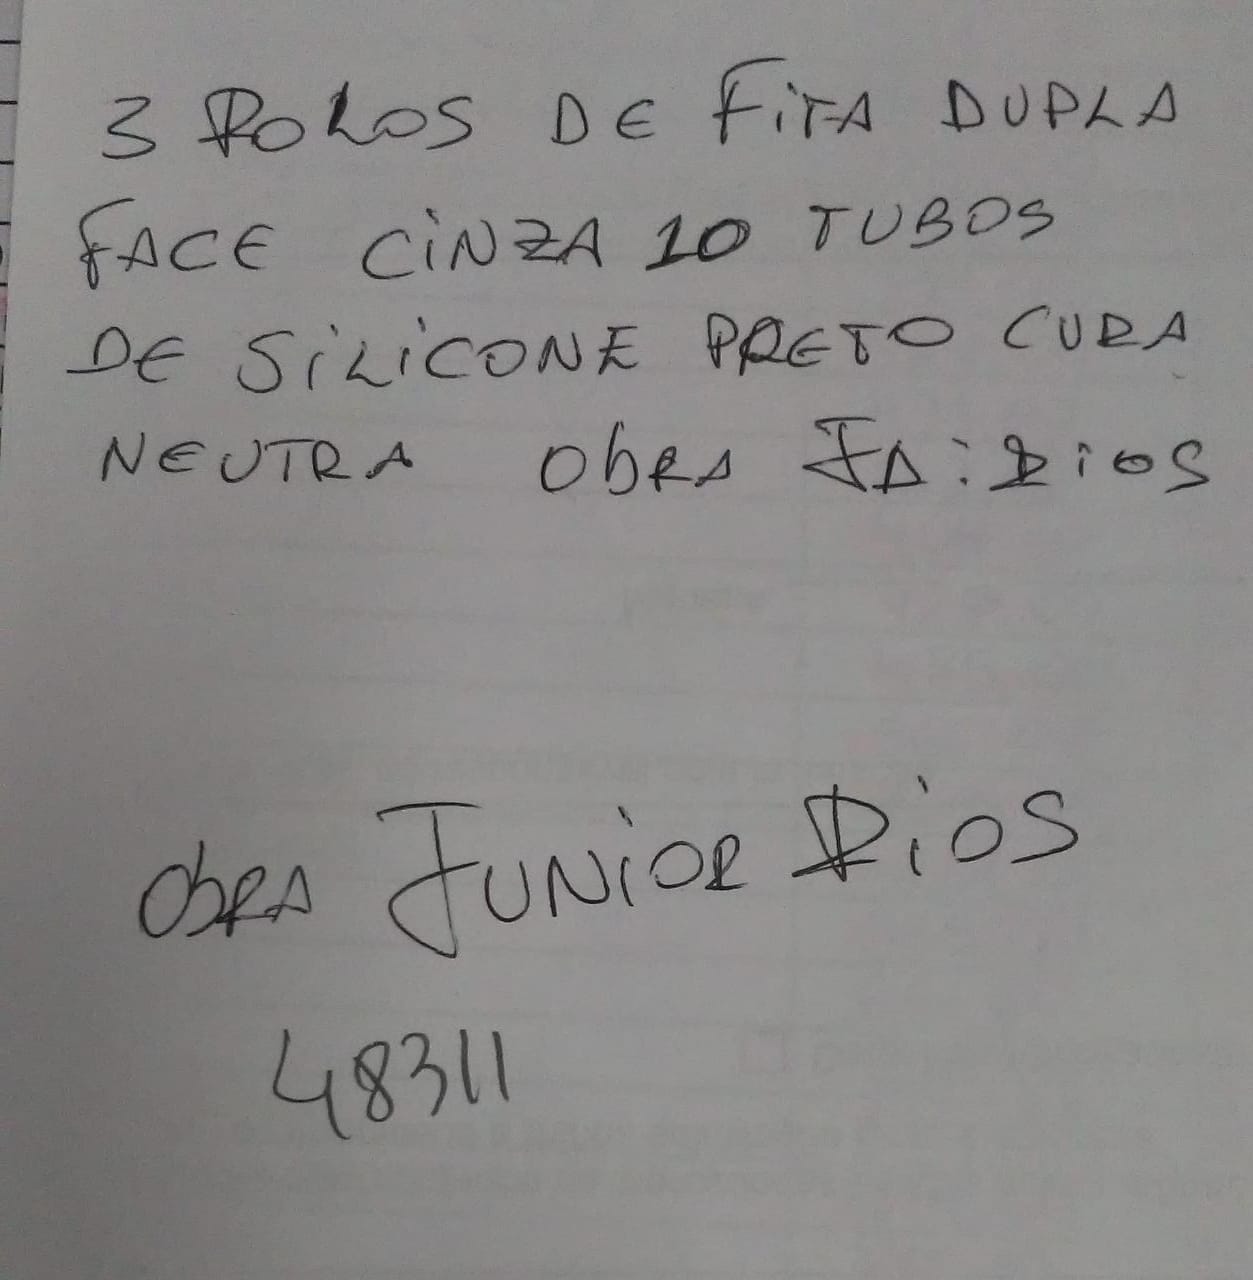 3 ROLOS DE FiTA DUPLA
FACE CiNZA 10 TUBOS
DE SiLiCONE PRETO CURA
NEUTRA ObRA
ObRA JUNiOR RiOS
48311